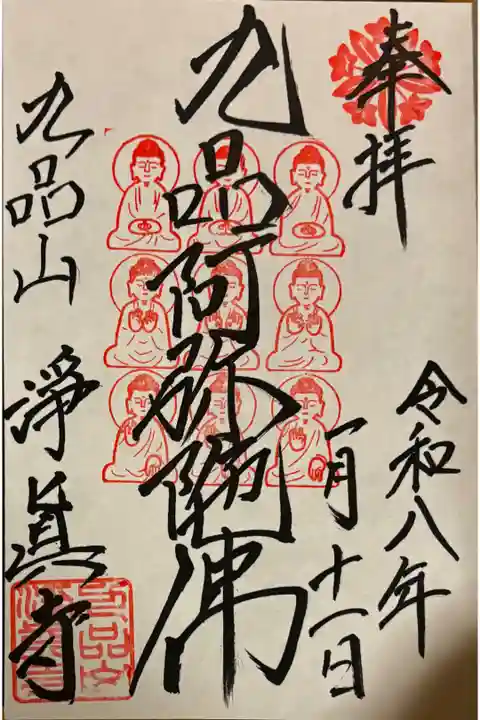 奉拝
令和八年
一月十一日
九品阿弥陀佛
九品山 淨眞寺